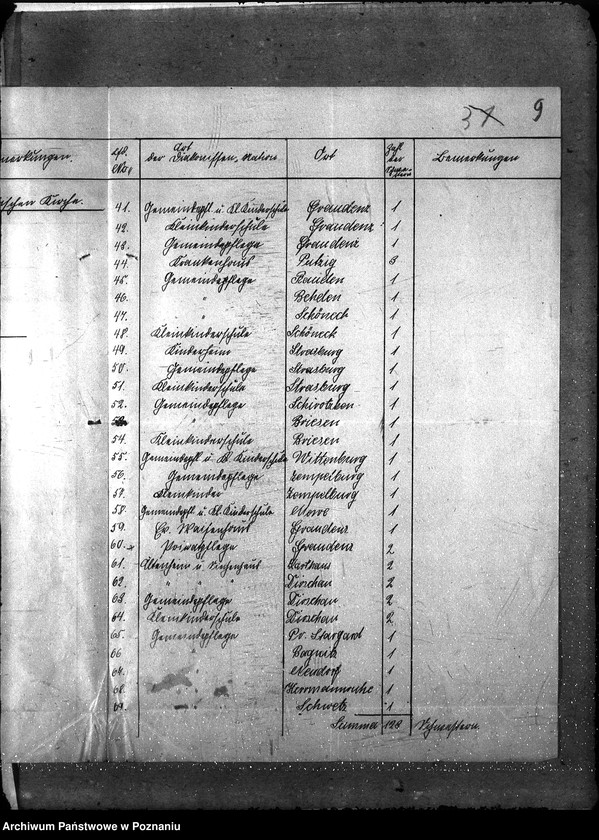 9
merkungen.
Lfd. No.
Art der Diakonissen, Station
Ort
Zahl der Schwestern
Bemerkungen
ischen Kirche.
41. Gemeindepfl. u. Kl. Kinderschule Graudenz 1
42. Kleinkinderschule Graudenz 1
43. Gemeindepflege Graudenz 1
44. Krankenhaus Putzig 3
45. Gemeindepflege Rauden 1
46. " 1
47. " Schöneck 1
48. Kleinkinderschule Schöneck 1
49. Kinderheim Strasburg 1
50. Gemeindepflege Strasburg 1
51. Kleinkinderschule Strasburg 1
52. Gemeindepflege Schirotzken 1
" Briesen 1
54. Kleinkinderschule Briesen 1
55. Gemeindepfl. u. Kl. Kinderschule Wittenburg 1
56. Gemeindepflege Zempelburg 1
57. Kleinkinder Zempelburg 1
58. Gemeindepfl. u. Kl. Kinderschule Mewe 1
59. Ev. Waisenhaus Graudenz 1
60. Privatpflege Graudenz 2
61. Altenheim u. Siechenhaus Karthaus 2
62. " " " Dirschau 2
63. Gemeindepflege Dirschau 2
64. Kleinkinderschule Dirschau 2
65. Gemeindepflege Pr. Stargard 1
66 " 1
67. " Neudorf 1
68. 1
69. Schwetz 1
Summa 128 Schwestern.
Archiwum Państwowe w Poznaniu